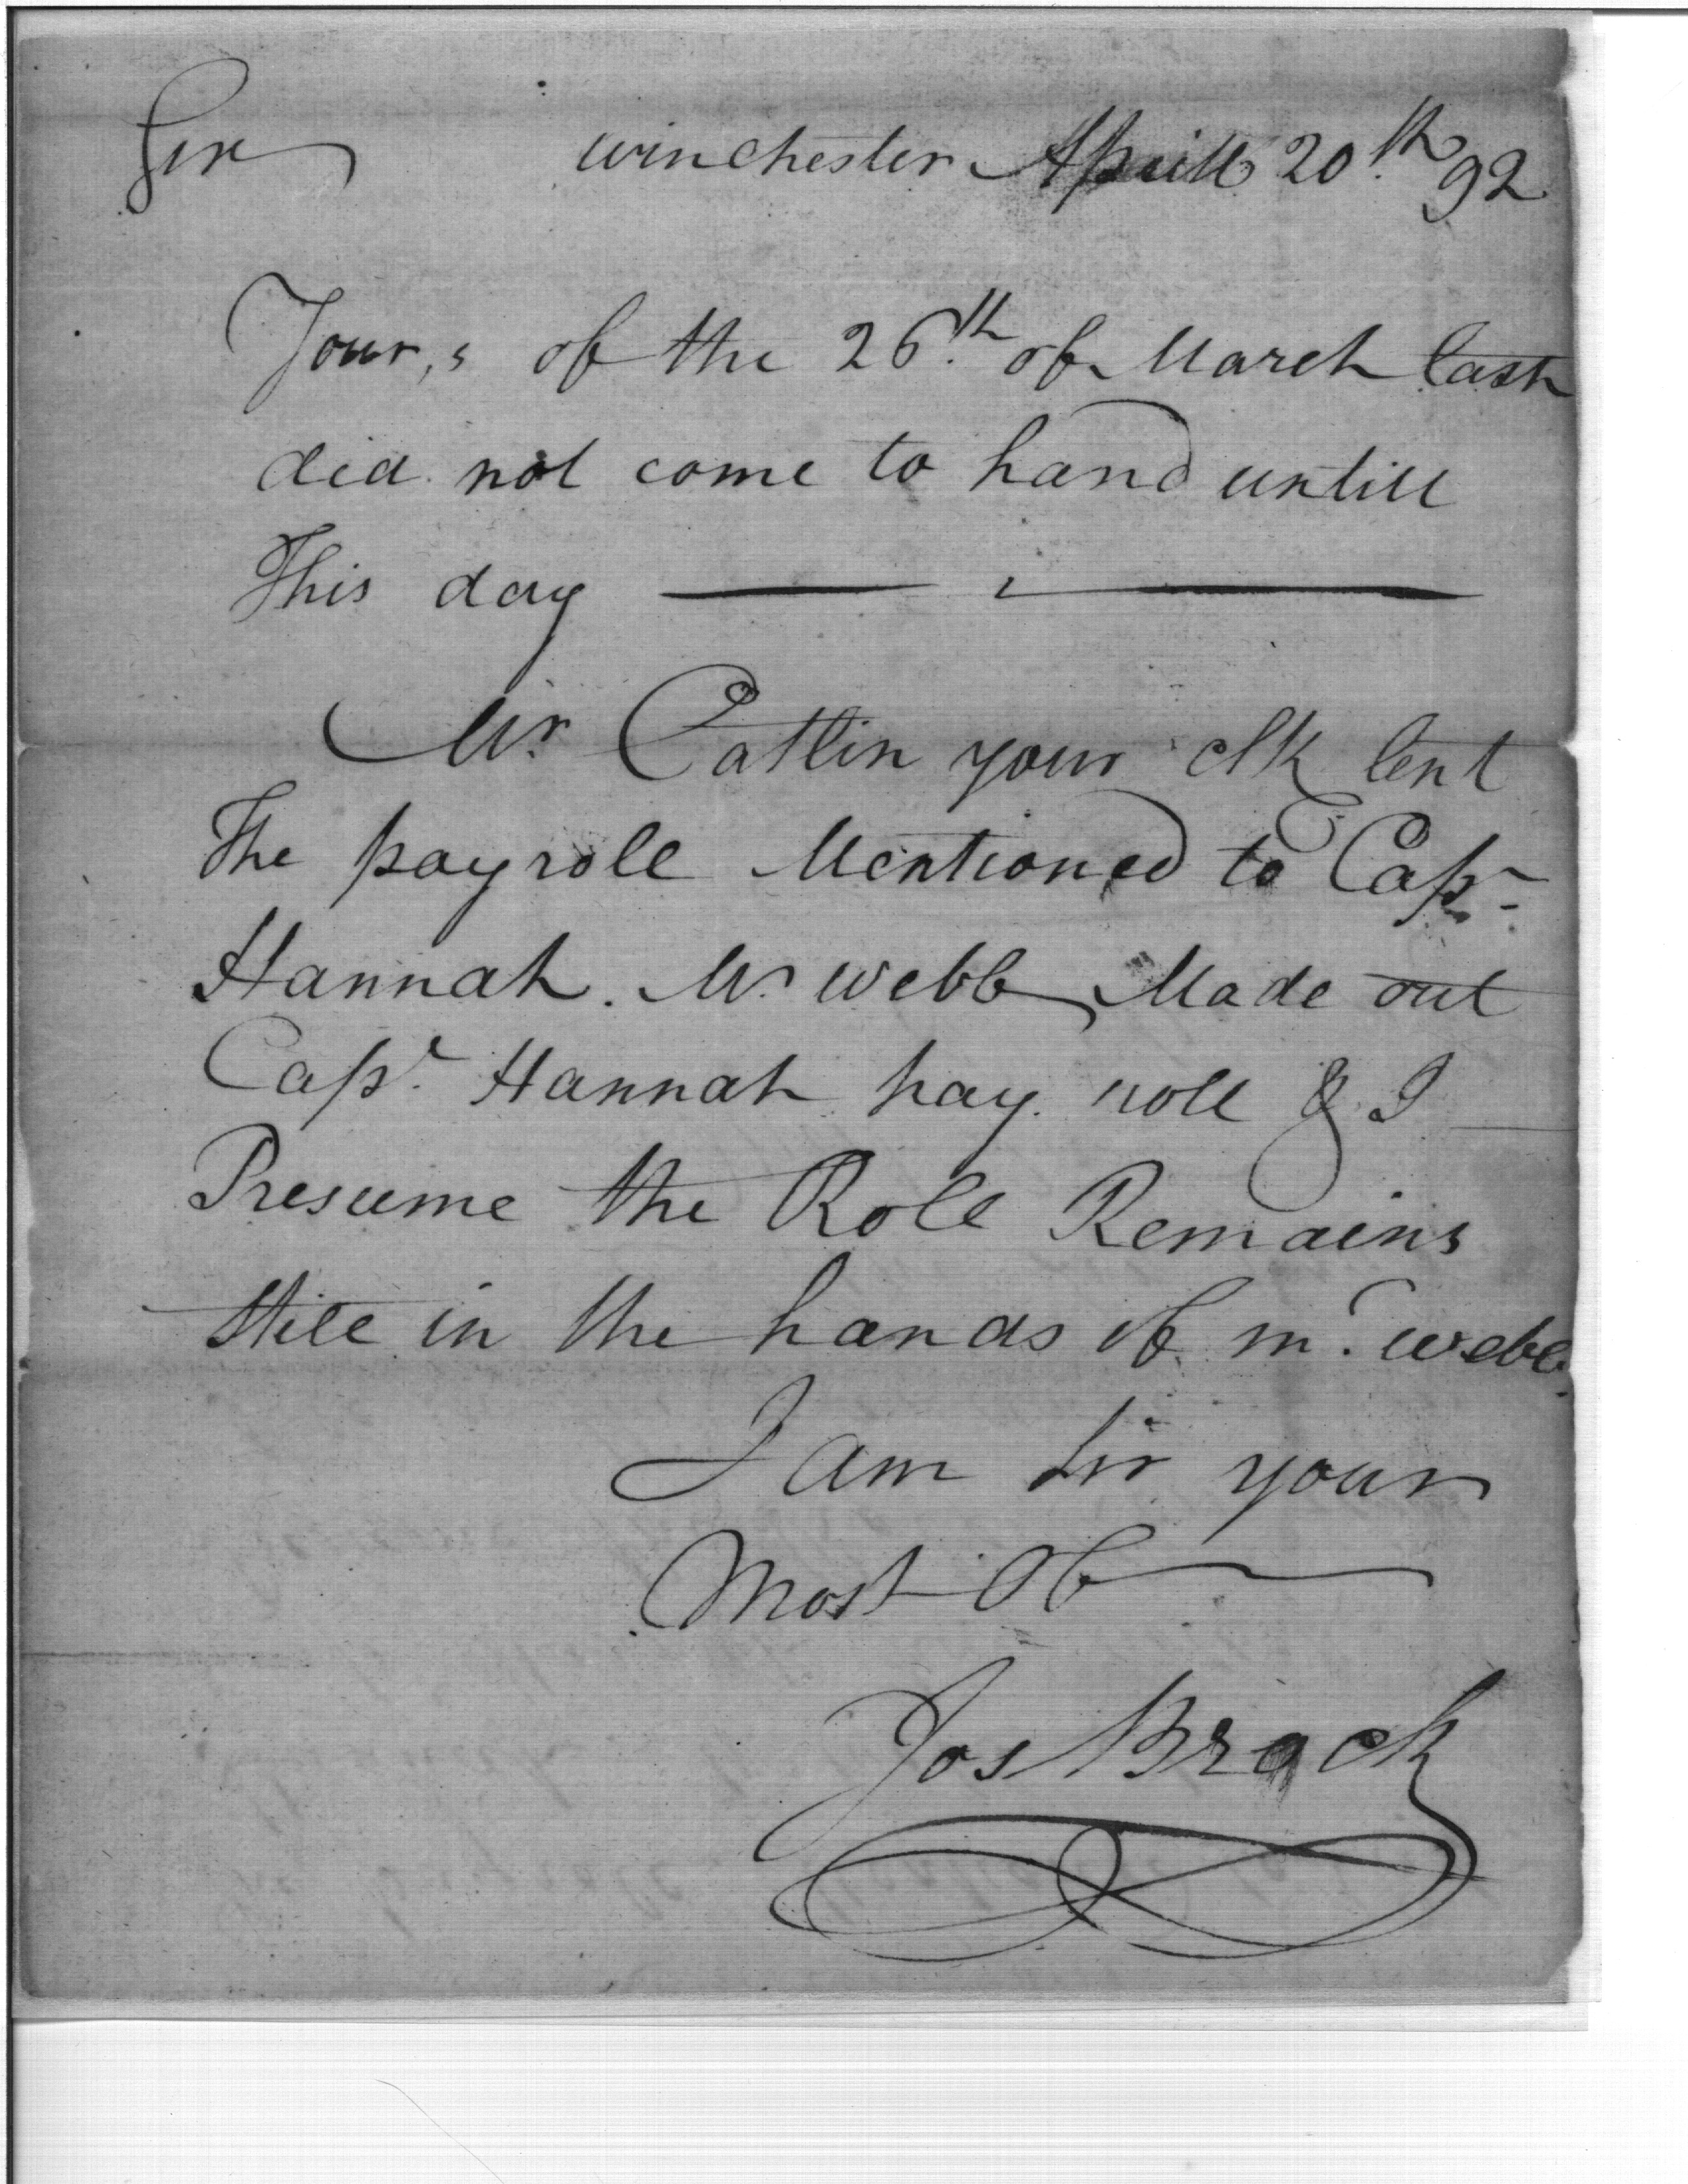 Sir winchester Aprill 20th 92
Your,s of the 26th of March last
did not come to hand untill
This day
Mr Catlin your clk lent
The payroll Mentioned to Capt
Hannah. Mr webb Made out
Capt Hannah pay roll & I
Presume the Roll Remains
still in the hands of mr webb
I am Sir your
Most Ob
Jos Brock